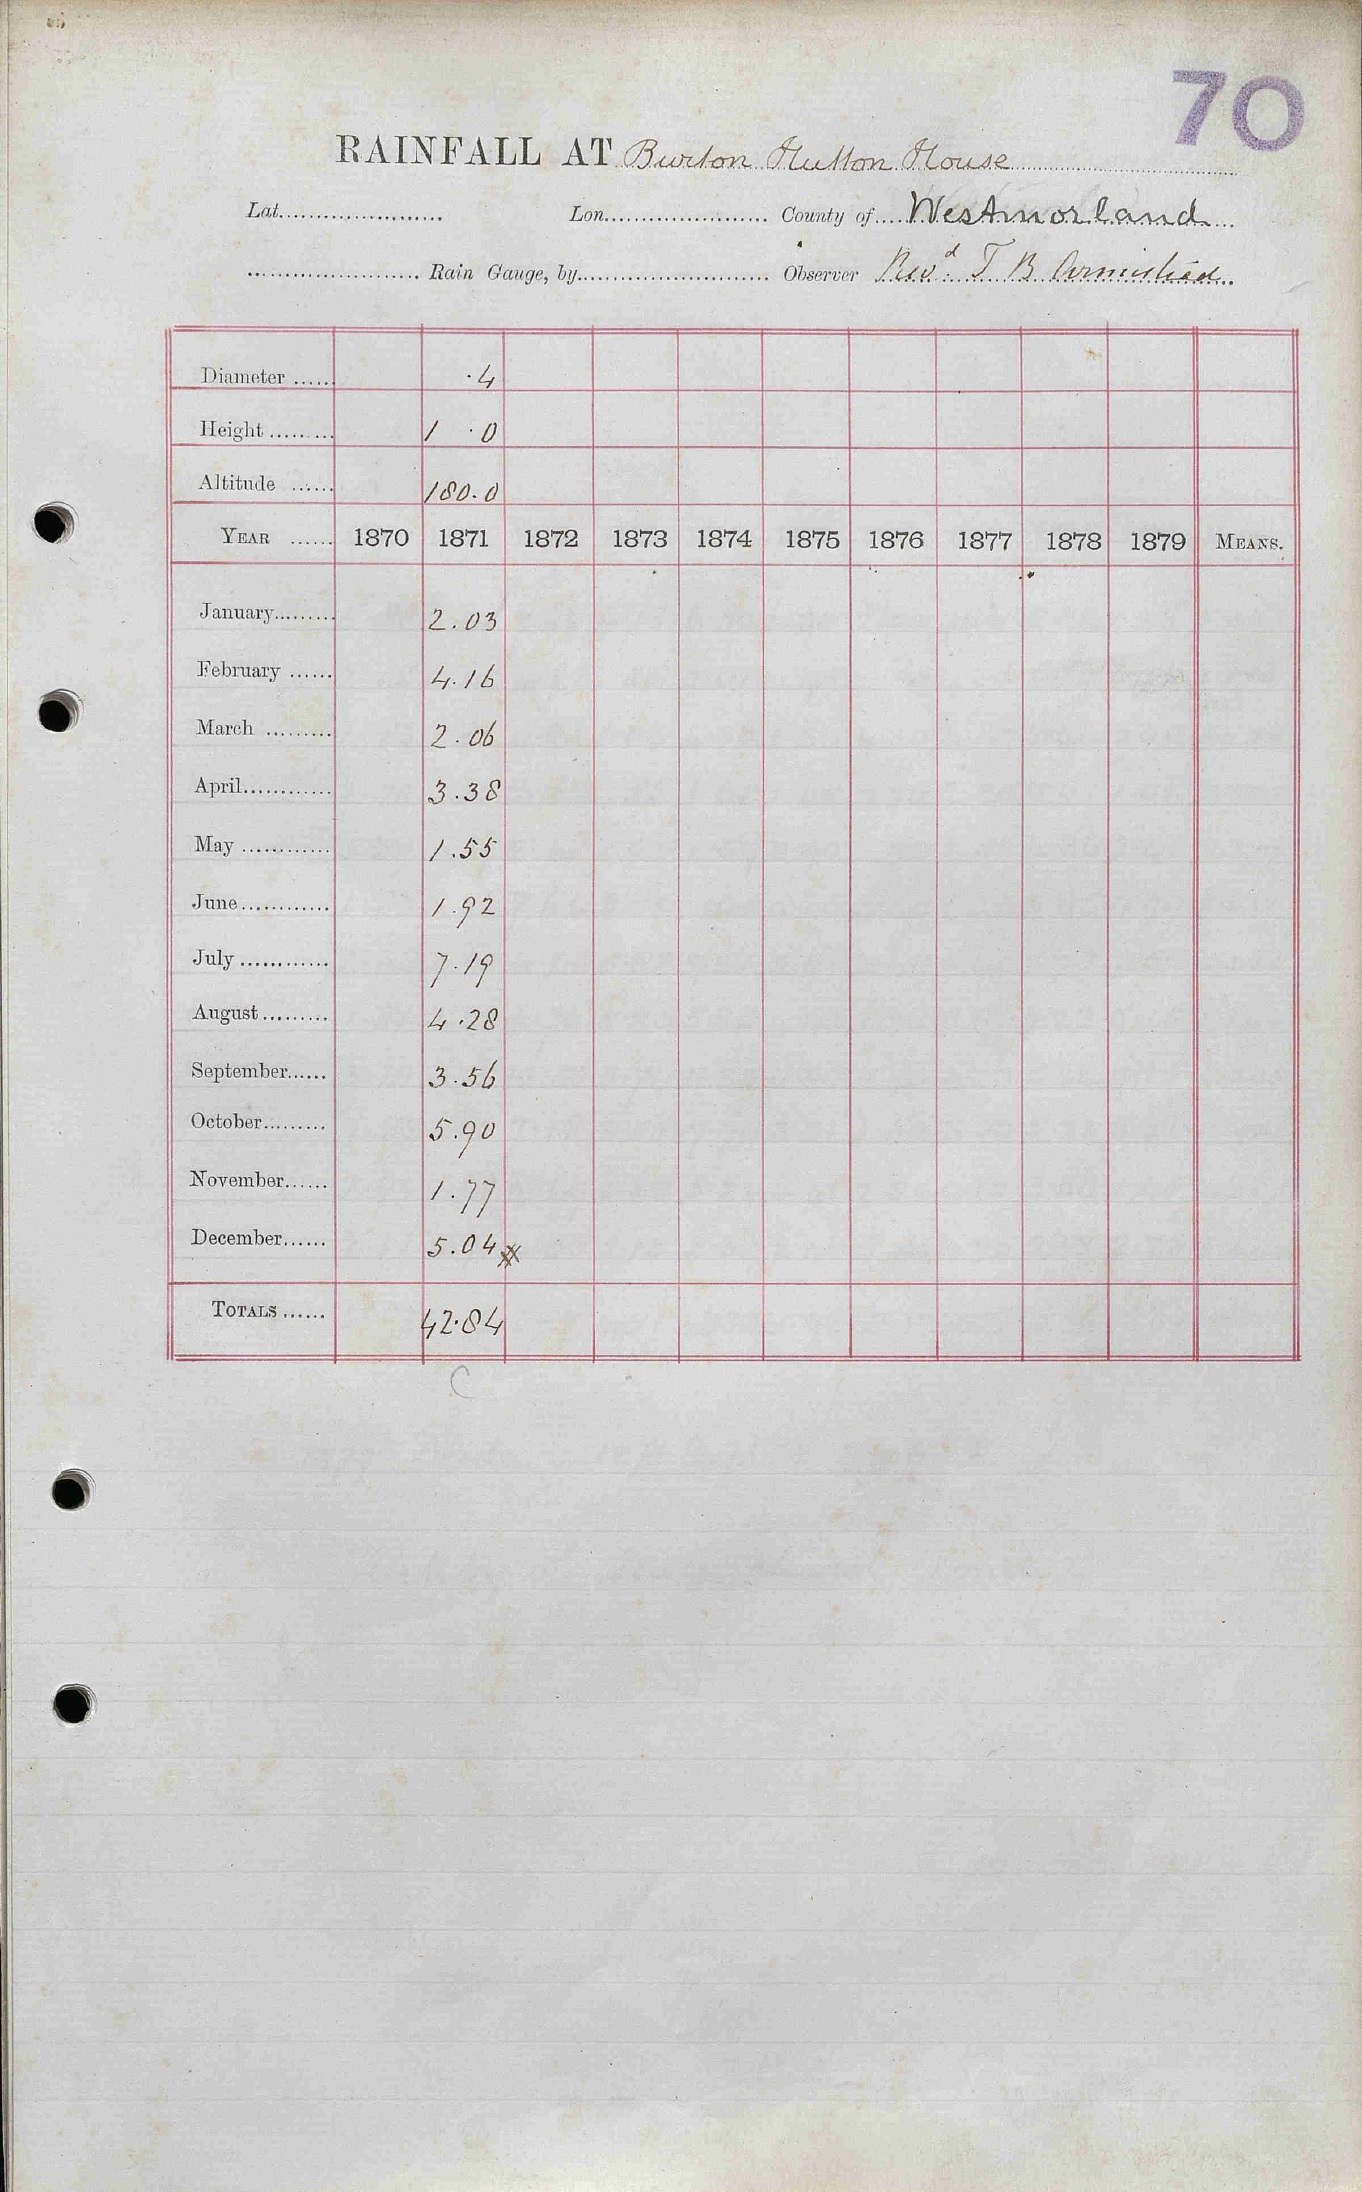 70
RAINFALL AT Burton Hutton House
Lat...................... Lon...................... County of.... Westmorland
....................... Rain Gauge, by......................... Observer Revd. T B Armistead
Diameter ...... ·4
Height ......... 1 ·0
Altitude ...... 180.0
YEAR ...... 1870 1871 1872 1873 1874 1875 1876 1877 1878 1879 MEANS.
January......... 2.03
February ...... 4.16
March ......... 2.06
April............ 3.38
May ............ 1.55
June............ 1.92
July ............ 7.19
August ......... 4.28
September...... 3.56
October......... 5.90
November...... 1.77
December...... 5.04 #
TOTALS ...... 42.84
C